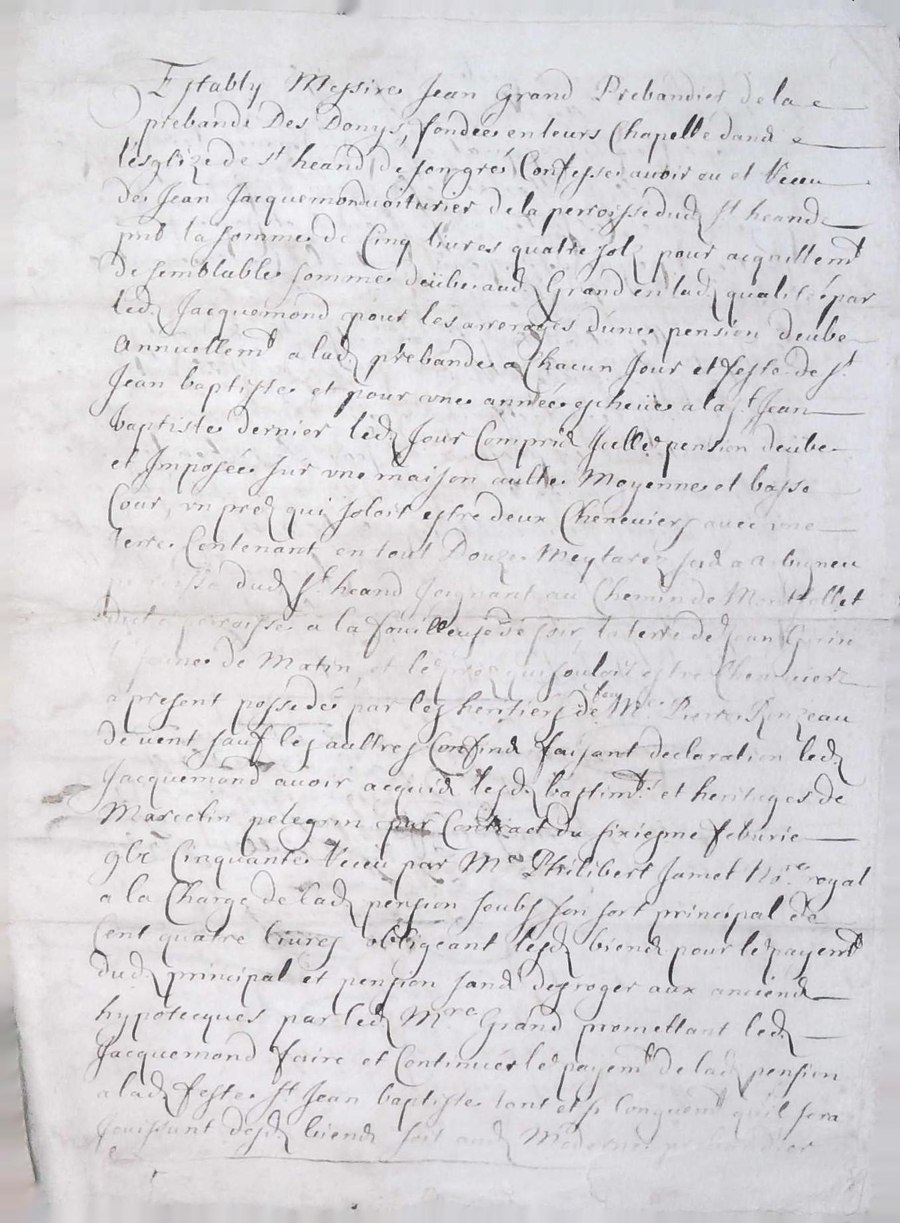 Establÿ Messire Jean Grand Prebandier de la
prebande Des Donys, fondée en leurs Chapelle dans
l'esglize de st heand, de son gré Confesse avoir eu et Receu
de Jean Jacquemond voiturier de la perroisse dud st heand
pnt la somme de Cinq livres quatre solz pour acquittemt
de semblable somme deübe aud Grand en lad qualité par
led Jacquemond pour les arrerages d'une pension deube
Annuellemt a lad prebande a Chacun Jour et feste de st
Jean baptiste et pour une année escheüe a la st Jean
baptiste dernier led Jour Comprid Jcelle pension deübe
et Imposée sur une maison aulte Moyenne et basse
Cour, un prez qui soloit estre deux Cheneviers avec une
terre Contenant en tout Douze Meytarez sid a
perroisse dud st heand Joignant au Chemin de
perroisse a la fouilleuse de soir la terre de Jean
de Matin, et le prez qui souloit estre Chenevier
a present possedé par les heritiers de feu Mr Pierre
de vent sauf les aultres Confind faisant declaration led
Jacquemond avoir acquid lesd bastimt et heritages de
Marcelin pelegrin par Contract du sixiesme feburie
gbc Cinquante Receu par Me Philibert Jamet Nore royal
a la Charge de lad pension soubs son sort principal de
Cent quatre livres obligeant lesd biend pour le payemt
dud principal et pension sand desroger aux anciend
hypotecques par led Mre Grand promettant led
Jacquemond faire et Continuer le payemt de lad pension
a lad feste st Jean baptiste tant et si longuemt qu'il sera
Jouissant desd biend soit aud Moderne prebandier